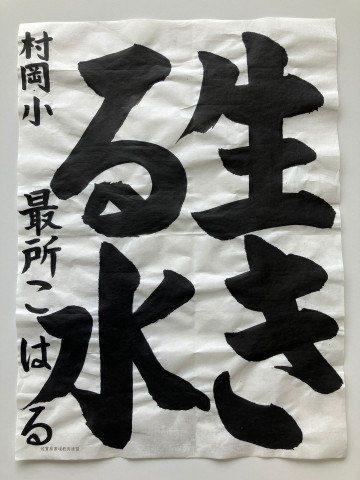 生き
る水
村岡小 最所こはる